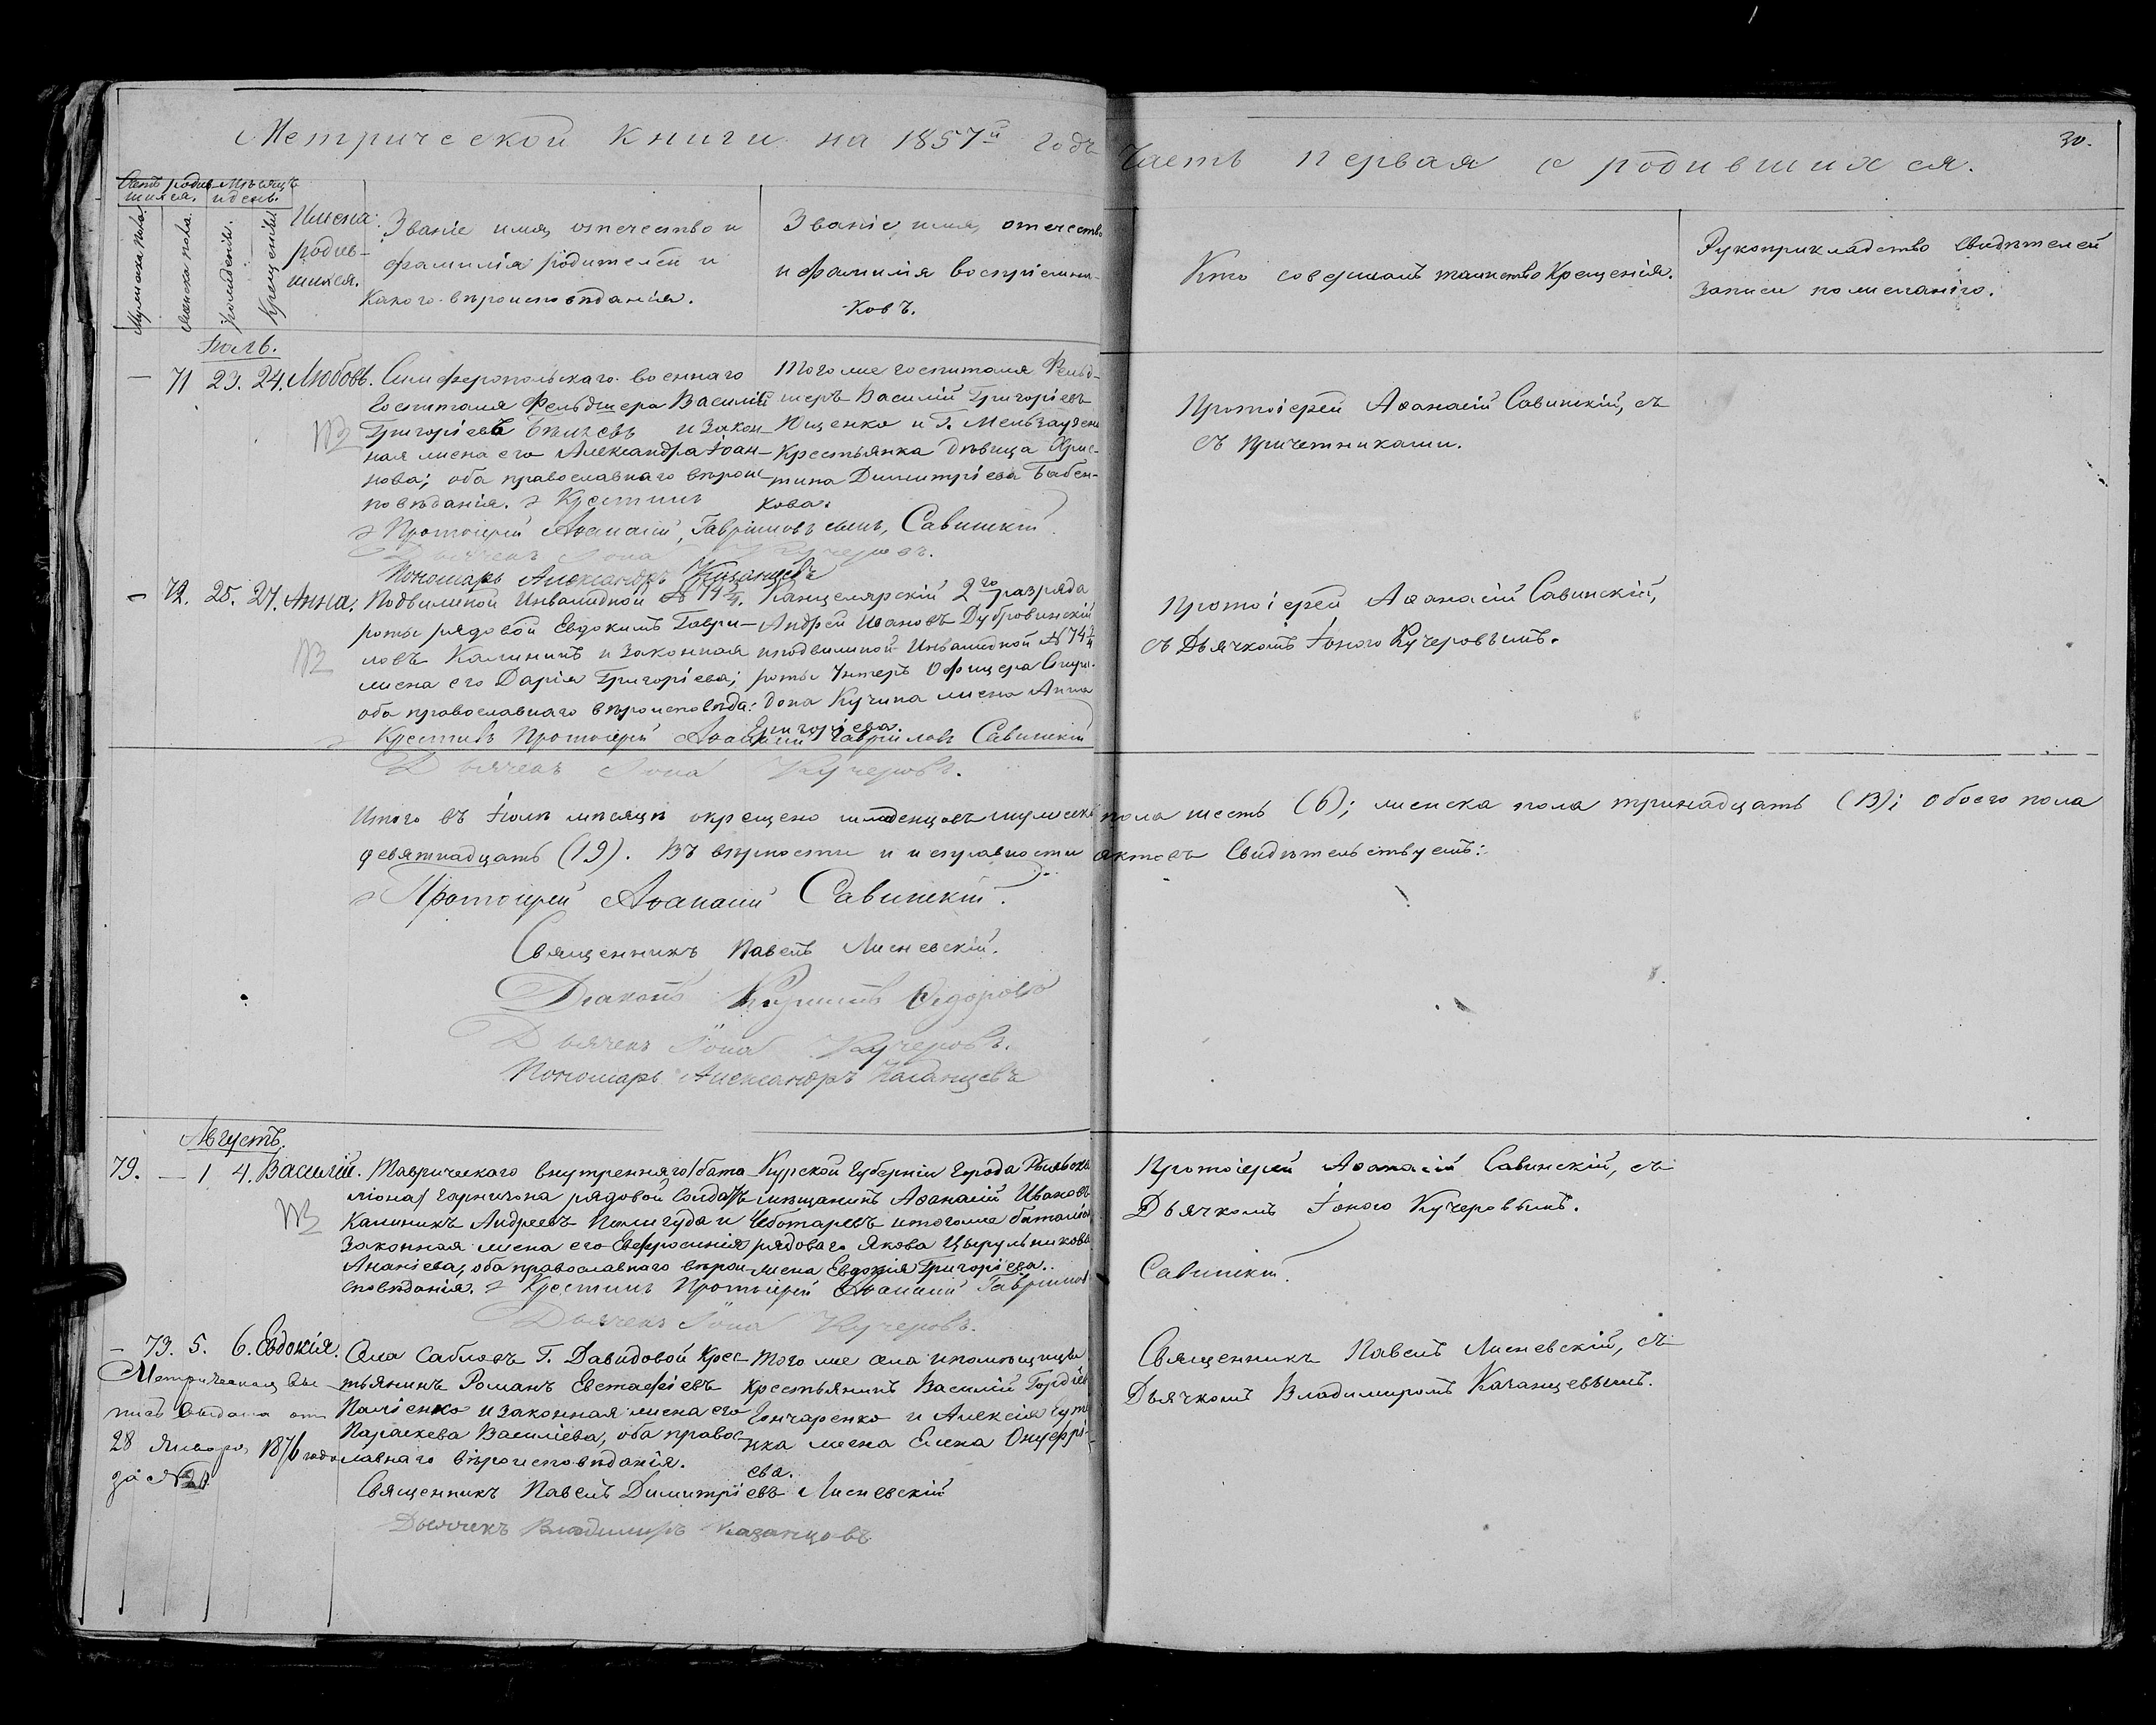 Метрической книги на 1857й годъ
Часть первая о родившихся.
30.
Счетъ родив-
шихся.
Мѣсяцъ
и день.
Мужеска пола.
Женска пола.
Рожденія.
Крещенія.
Имена
родив-
шихся.
Званіе имя, отечество и
фамилія родителей и
какого вѣроисповѣданія.
Званіе имя, отечество
и фамилія воспріемни-
ковъ.
Кто совершалъ таинство Крещенія.
Рукоприкладство свидѣтелей
записи по желанію.
Іюль.
— 71 23. 24. Любовь.
Симферопольскаго военнаго
госпиталя Фельдшера Василій
Григорьевъ и закон-
ная жена его Александра Іоан-
нова; оба православнаго вѣроис-
повѣданія. Крестилъ
Протоіерей Аѳанасій, Гавріиловъ сынъ, Савинскій
Дьячекъ Іона Кучеровъ.
Пономарь Александръ Казанцевъ
Того же госпиталя Фельд-
шеръ Василій Григорьевъ
Ющенко и Г.
Крестьянка дѣвица Хрис-
тина Димитріева Бабен-
кова.
Протоіерей Аѳанасій Савинскій, съ
съ причетниками.
— 72. 25. 27. Анна.
Подвижной Инвалидной № 74
роты рядовой Евдокимъ Гаври-
ловъ Калининъ и законная
жена его Дарія Григоріева;
оба православнаго вѣроисповѣда:
Крестилъ Протоіерей Аѳанасій Гавріиловъ Савинскій
Дьячекъ Іона Кучеровъ.
Канцелярскій 2го разряда
Андрей Ивановъ Дубровинскій
и подвижной Инвалидной № 74
роты Унтеръ Офицера Спири-
дона Кучина жена Анна
Григоріева.
Протоіерей Аѳанасій Савинскій,
съ Дьячкомъ Іоною Кучеровымъ.
Итого въ Іюлѣ мѣсяцѣ окрещено младенцовъ мужеска пола шесть (6); женска пола тринадцать (13); обоего пола
девятнадцать (19). Въ вѣрности и исправности актовъ свидѣтельствуетъ:
Протоіерей Аѳанасій Савинскій.
Священникъ Павелъ Лисневскій.
Діаконъ Кириллъ Ѳедоровъ
Дьячекъ Іона Кучеровъ.
Пономарь Александръ Казанцевъ
Августъ.
79. — 1 4. Василій.
Таврическаго внутренняго бата-
ліона гарнизона рядовой солдатъ
Калиникъ Андреевъ и
законная жена его Евфросинія
Ананіева, оба православнаго вѣрои-
сповѣданія. Крестилъ Протоіерей Аѳанасій Гавріиловъ
Дьячекъ Іона Кучеровъ.
Курской губерніи города Рыльска
мѣщанинъ Аѳанасій Ивановъ
Чеботаревъ и того же баталіона
рядоваго Якова Цырульникова
жена Евдокія Григоріева.
Протоіерей Аѳанасій Савинскій, съ
Дьячкомъ Іоною Кучеровымъ.
Савинскій.
— 73. 5. 6. Евдокія.
Метрическая вы-
пись выдана отъ
28 Января 1876 года
за №
Села Сабловъ Г. Давидовой Крес-
тьянинъ Романъ Евстафіевъ
Паліенко и законная жена его
Параскева Василіева, оба правос-
лавнаго вѣроисповѣданія.
Священникъ Павелъ Димитріевъ Лисневскій
Дьячекъ Владимиръ Казанцовъ
Того же села и помѣщицы
крестьянинъ Василій Гордіевъ
Гончаренко и Алексія
жена Елена Онуфрі-
ева.
Священникъ Павелъ Лисневскій, съ
Дьячкомъ Владимиромъ Казанцевымъ.